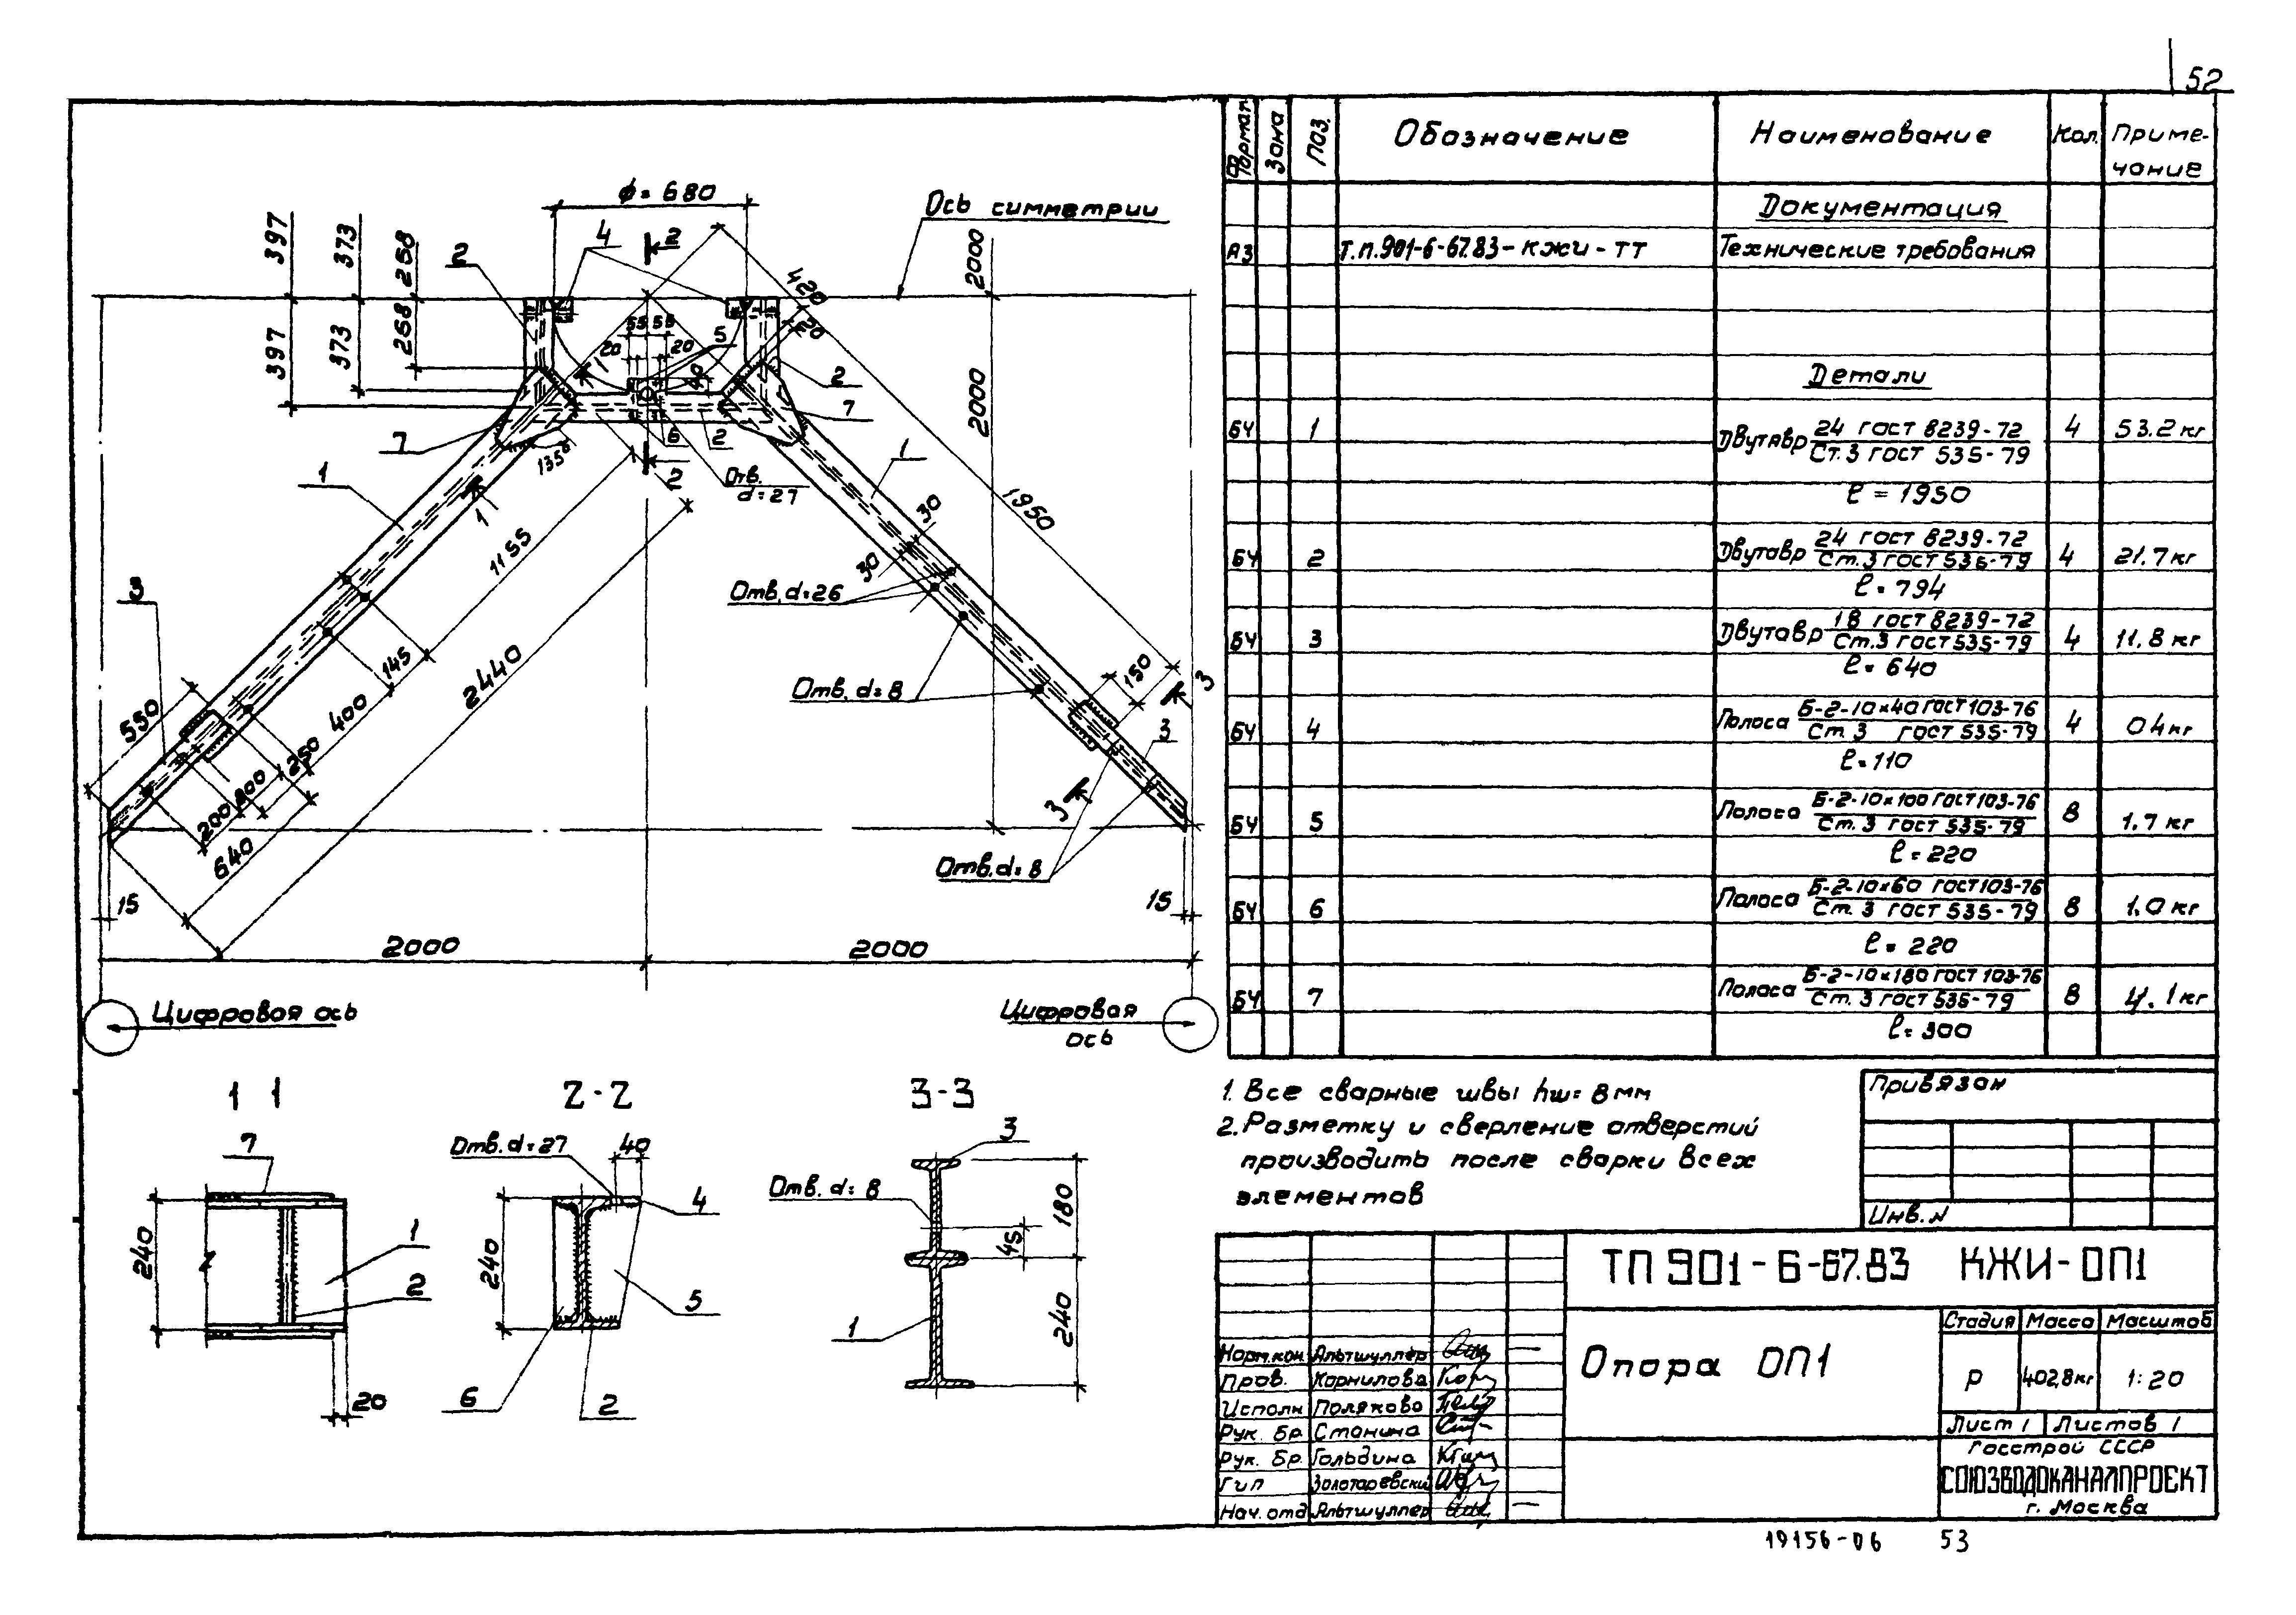 52
Формат
Зона
Поз.
Обозначение
Наименование
Кол.
Приме-
чание
Документация
А3
Т.п.901-6-67.83-КЖИ-ТТ
Технические требования
Детали
БЧ
1
Двутавр 24 ГОСТ 8239-72
Ст.3 ГОСТ 535-79
4
53.2 кг
ℓ = 1950
БЧ
2
Двутавр 24 ГОСТ 8239-72
Ст.3 ГОСТ 535-79
4
21.7 кг
ℓ = 794
БЧ
3
Двутавр 18 ГОСТ 8239-72
Ст.3 ГОСТ 535-79
4
11.8 кг
ℓ = 640
БЧ
4
Полоса Б-2-10×40 ГОСТ 103-76
Ст.3 ГОСТ 535-79
4
0 4 кг
ℓ = 110
БЧ
5
Полоса Б-2-10×100 ГОСТ 103-76
Ст.3 ГОСТ 535-79
8
1.7 кг
ℓ = 220
БЧ
6
Полоса Б-2-10×60 ГОСТ 103-76
Ст.3 ГОСТ 535-79
8
1.0 кг
ℓ = 220
БЧ
7
Полоса Б-2-10×180 ГОСТ 103-76
Ст.3 ГОСТ 535-79
8
4.1 кг
ℓ = 300
ϕ = 680
Ось симметрии
397
373
268
397
373
268
2
4
2
2000
2000
420
20
55 55
5
20
20
40
1
2
7
7
6
2
135°
2
Отв.
d = 27
1
1
1
1950
30
30
1155
Отв. d = 26
3
145
2440
400
550
Отв. d = 8
150
3
3
3
250
200
200
640
Отв. d = 8
15
15
2000
2000
Цифровая ось
Цифровая
ось
1 1
7
240
1
2
20
2-2
Отв. d = 27
40
4
240
5
6
2
3-3
3
Отв. d = 8
180
45
240
1
1. Все сварные швы hш = 8 мм
2. Разметку и сверление отверстий
производить после сварки всех
элементов
Привязан
Инв. N
ТП 901-6-67.83 КЖИ-ОП1
Опора ОП1
Стадия
Масса
Масштаб
Р
402,8 кг
1:20
Лист 1
Листов 1
Госстрой СССР
СОЮЗВОДОКАНАЛПРОЕКТ
г. Москва
Норм.кон Альтшуллер
Пров. Корнилова
Исполн Полякова
Рук. бр Станина
Рук. бр. Гольдина
Гип Золотаревский
Нач. отд Альтшуллер
19156-06 53